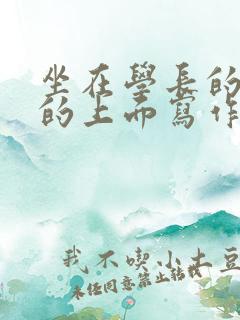 坐在學長的
的上面寫作
我不喫小土豆
未经同意禁止转载